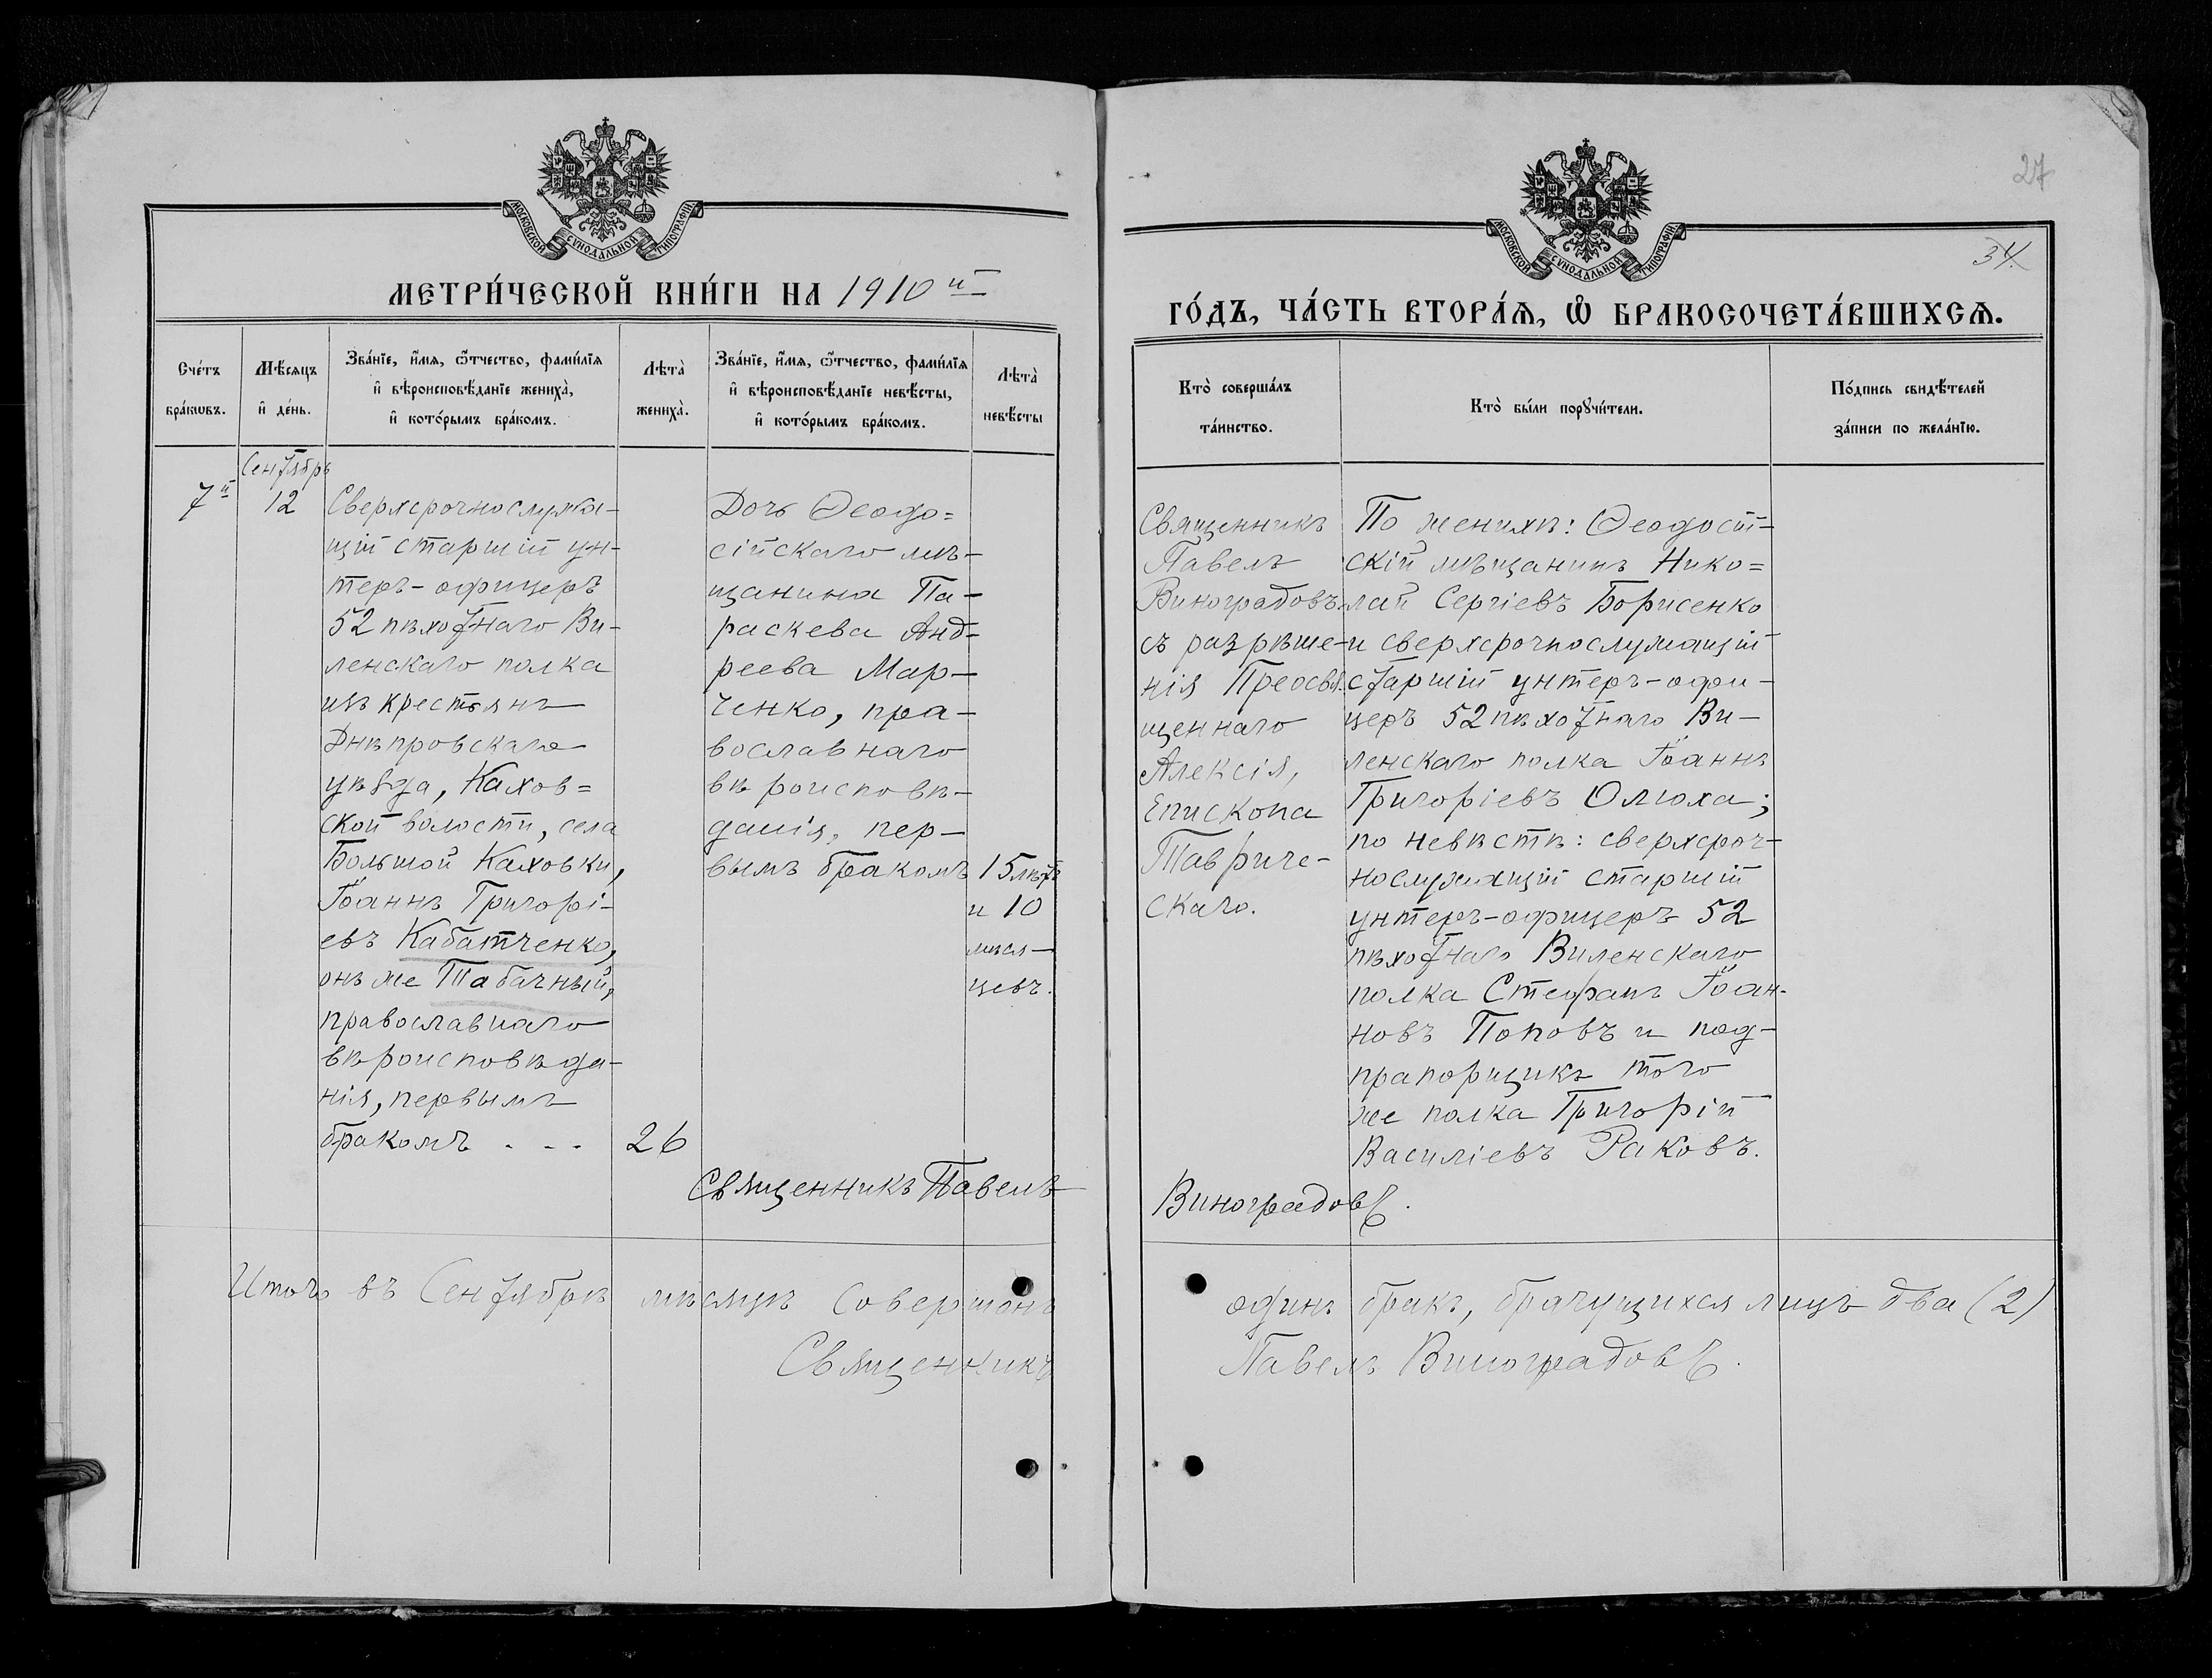 МОСКОВСКОЙ СѴНОДАЛЬНОЙ ТИПОГРАФІИ
МЕТРИ́ЧЕСКОЙ КНИ́ГИ НА 1910 й
Сче́тъ бра́ковъ.
Мѣ́сяцъ и҆ де́нь.
Зва́нїе, и҆́мѧ, ѻ҆́тчество, фами́лїѧ
и҆ вѣроисповѣ́данїе жениха̀,
и҆ кото́рымъ бра́комъ.
Лѣта̀ жениха̀.
Зва́нїе, и҆́мѧ, ѻ҆́тчество, фами́лїѧ
и҆ вѣроисповѣ́данїе невѣ́сты,
и҆ кото́рымъ бра́комъ.
Лѣта̀ невѣ́сты
7й
Сентябрь
12
Сверхсрочнослужа-
щій старшій ун-
теръ-офицеръ
52 пѣхотнаго Ви-
ленскаго полка
изъ крестьянъ
Днѣпровскаго
уѣзда, Кахов=
ской волости, села
Большой Каховки,
Іоаннъ Григорі-
евъ Кабатченко,
онъ же Табачный,
православнаго
вѣроисповѣда-
нія, первымъ
бракомъ . - -
26
Дочь Ѳеодо=
сійскаго мѣ-
щанина Па-
раскева Анд-
реева Мар-
ченко, пра-
вославнаго
вѣроисповѣ-
данія, пер-
вымъ бракомъ
15 лѣтъ
и 10
мѣся-
цевъ.
Священникъ Павелъ
Итого въ Сентябрѣ мѣсяцѣ совершонъ
Священникъ
27
34.
МОСКОВСКОЙ СѴНОДАЛЬНОЙ ТИПОГРАФІИ
ГО́ДЪ, ЧА́СТЬ ВТОРА́Ѧ, Ѽ БРАКОСОЧЕТА́ВШИХСѦ.
Кто̀ соверша́лъ
та́инство.
Кто̀ бы́ли порꙋчи́тели.
По́дпись свидѣ́телей
за́писи по жела́нїю.
Священникъ
Павелъ
Виноградовъ
съ разрѣше-
нія Преосвя-
щеннаго
Алексія,
Епископа
Тавриче-
скаго.
По женихѣ: Ѳеодосій-
скій мѣщанинъ Нико=
лай Сергіевъ Борисенко
и сверхсрочнослужащій
старшій унтеръ-офи-
церъ 52 пѣхотнаго Ви-
ленскаго полка Іоаннъ
Григоріевъ Олюха;
по невѣстѣ: сверхсроч-
нослужащій старшій
унтеръ-офицеръ 52
пѣхотнаго Виленскаго
полка Стефанъ Іоан-
новъ Поповъ и под-
прапорщикъ того
же полка Григорій
Василіевъ Раковъ.
Виноградовъ.
одинъ бракъ, брачущихся лицъ два (2)
Павелъ Виноградовъ.